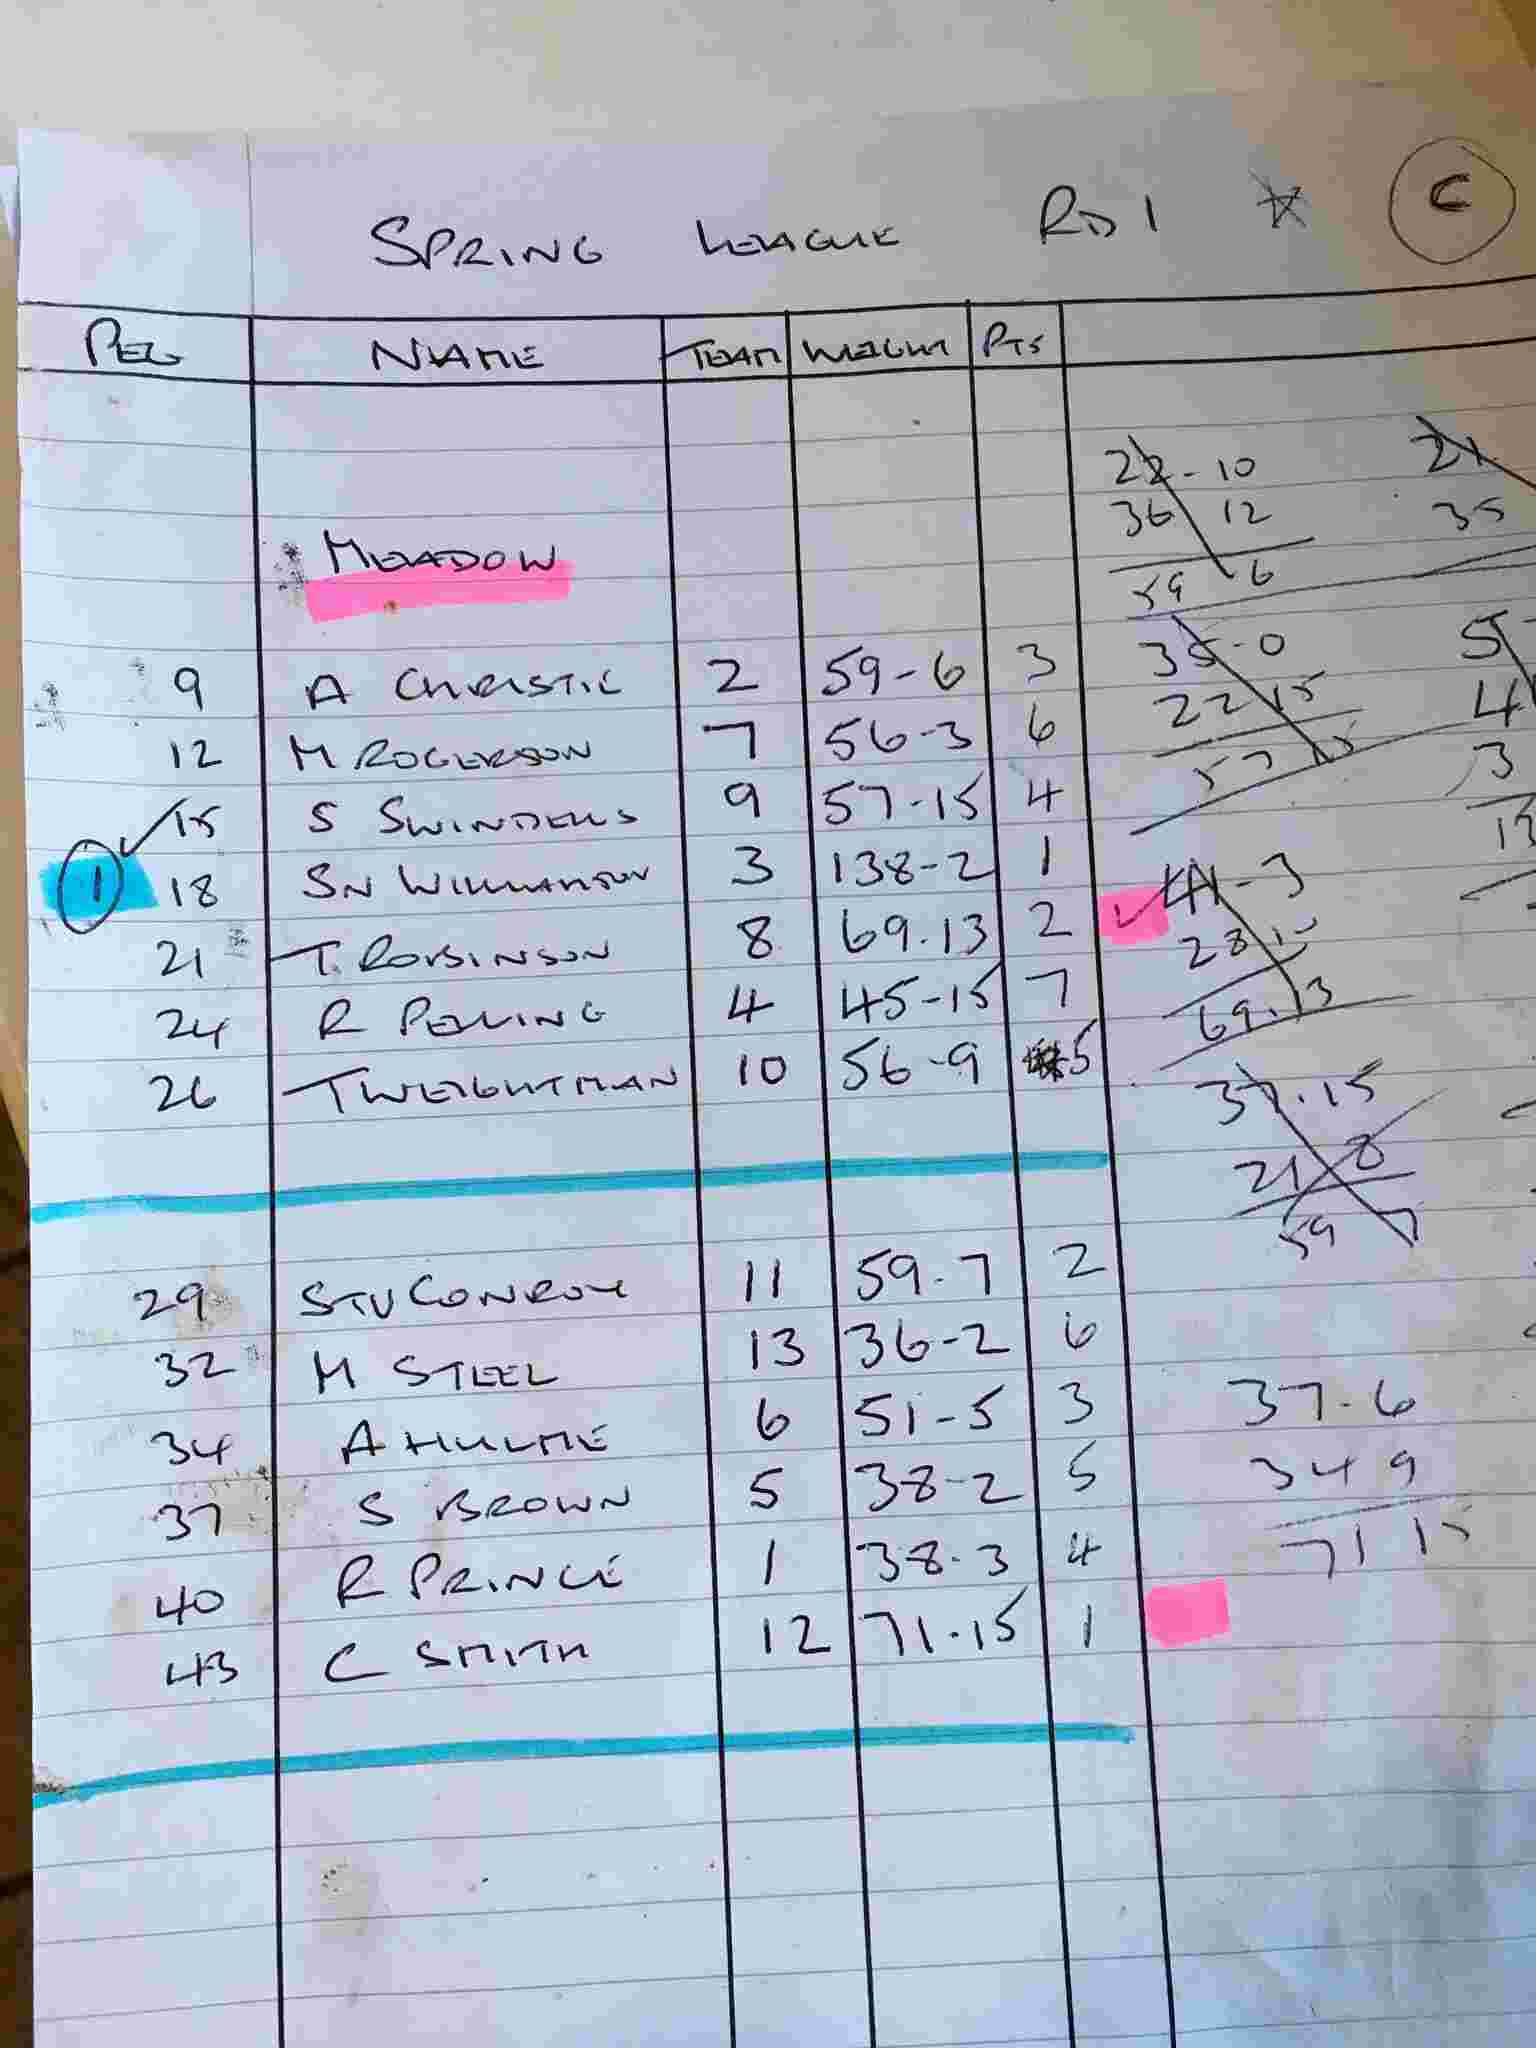 SPRING LEAGUE RD 1 C
PEG NAME TEAM WEIGHT PTS
22-10 21
36 12 35
59 6
MEADOW
9 A CHRISTIE 2 59-6 3 35-0
12 M ROGERSON 7 56-3 6 22 15
57 15 3
15 S SWINDELLS 9 57-15 4
1 18 SN WILLIAMSON 3 138-2 1
21 T. ROBINSON 8 69.13 2 28 15
24 R PELLING 4 45-15 7 69.13
26 T WEIGHTMAN 10 56-9 5 37.15
21 8
59 7
29 STU CONROY 11 59.7 2
32 M STEEL 13 36-2 6
34 A HULME 6 51-5 3 37.6
37 S BROWN 5 38-2 5 34 9
40 R PRINCE 1 38.3 4 71 15
43 C SMITH 12 71.15 1